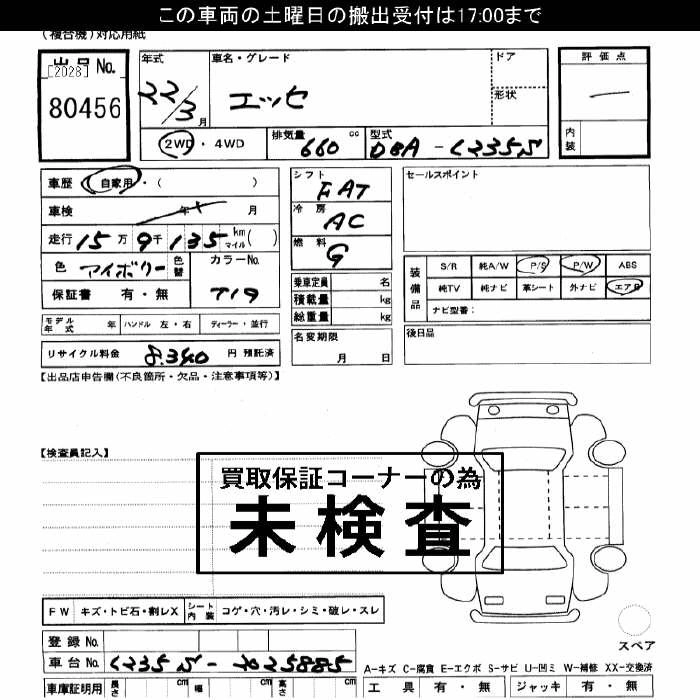 この車両の土曜日の搬出受付は17:00まで
(複合機)対応用紙
出品No.
[2028]
80456
年式
22/3月
車名・グレード
エッセ
ドア
形状
評価点
内装
2WD・4WD
排気量 660 cc
型式 DBA-L235S
車歴 自家用・( )
車検 年 月
走行 15万9千135 km マイル( )
色 アイボリー 色替
カラーNo. T19
保証書 有・無
シフト FAT
冷房 AC
燃料 G
乗車定員 名
積載量 kg
総重量 kg
セールスポイント
装備品
S/R 純A/W P/S P/W ABS
純TV 純ナビ 革シート 外ナビ エアB
ナビ型番:
モデル年式 年 ハンドル 左・右 ディーラー・並行
名変期限 月 日
後日品
リサイクル料金 8,340 円 預託済
【出品店申告欄(不良箇所・欠品・注意事項等)】
【検査員記入】
買取保証コーナーの為
未検査
FW キズ・トビ石・割レX シート内装 コゲ・穴・汚レ・シミ・破レ・スレ
登録No.
車台No. L235S-2025885
スペア
A-キズ C-腐食 E-エクボ S-サビ U-凹ミ W-補修 XX-交換済
車庫証明用 長さ cm 幅 cm 高さ cm
工具 有・無 ジャッキ 有・無